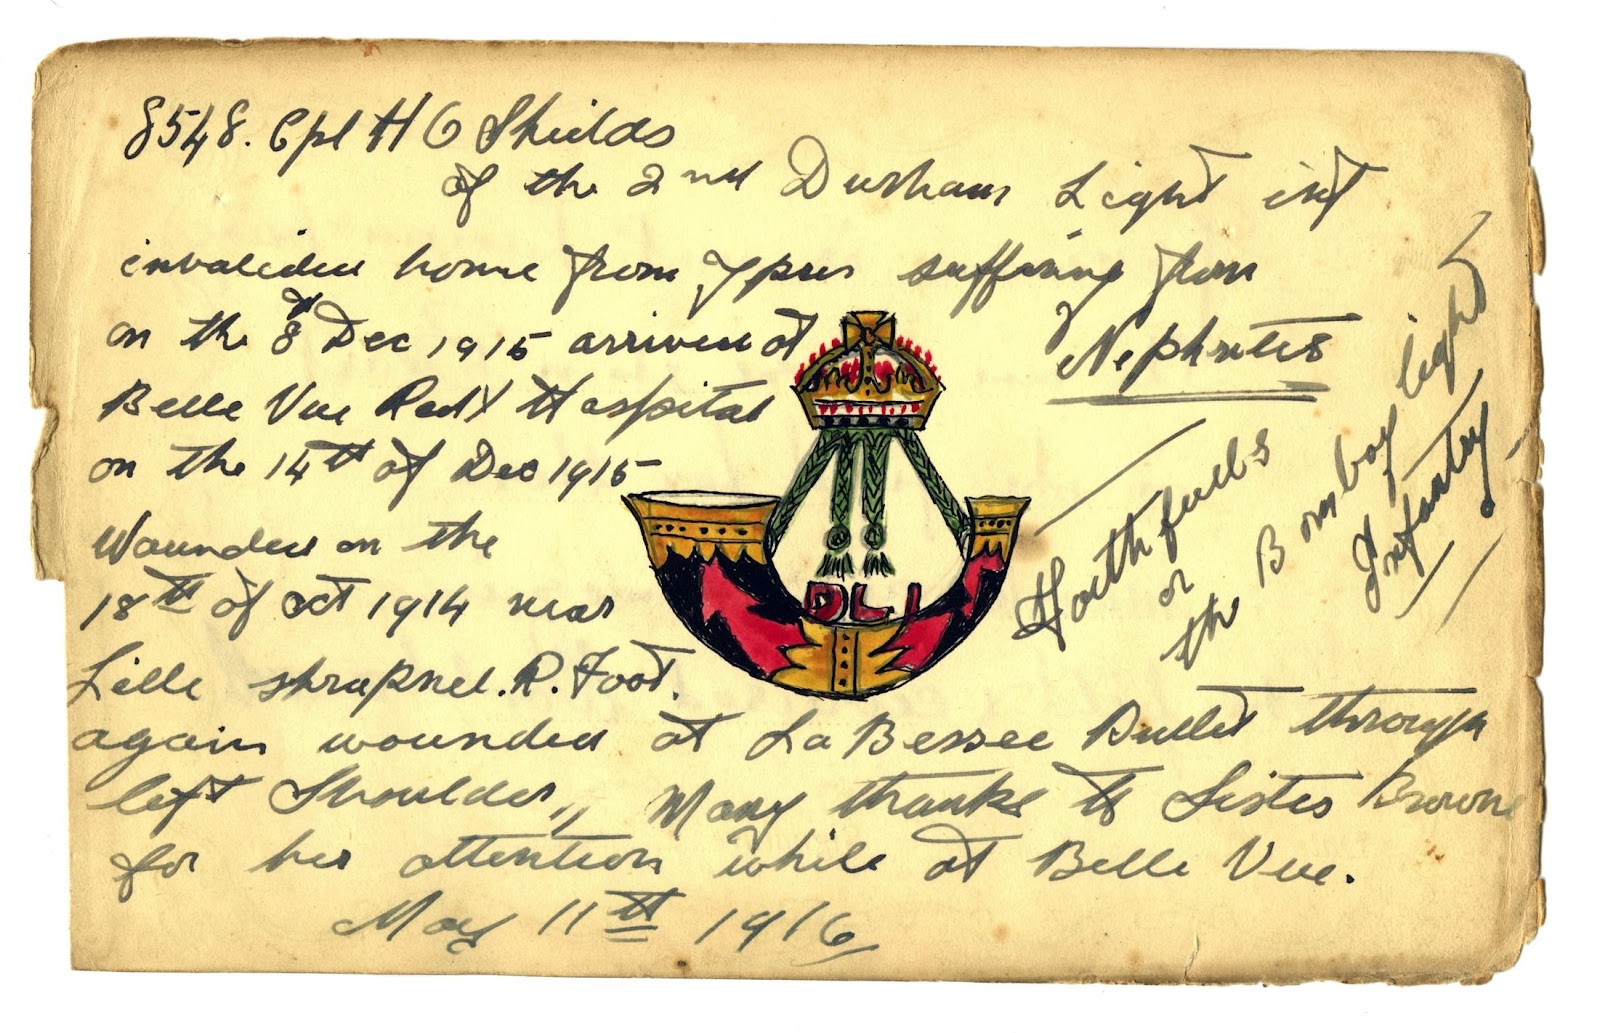 8548. Cpl H G Shields
of the 2nd Durham Light inf
invalided home from Ypres suffering from
on the 8th Dec 1915 arrived at Nephrites
Belle Vue Red X Hospital
on the 14th of Dec 1915
Wounded on the
18th of oct 1914 near
Lille shrapnel. R. Foot.
again wounded at La Bessee Bullet through
left Shoulder,, Many thanks to Sister Browne
for her attention while at Belle Vue.
May 11th 1916
DLI
Faithfulls
or
the Bombay light
Infantry